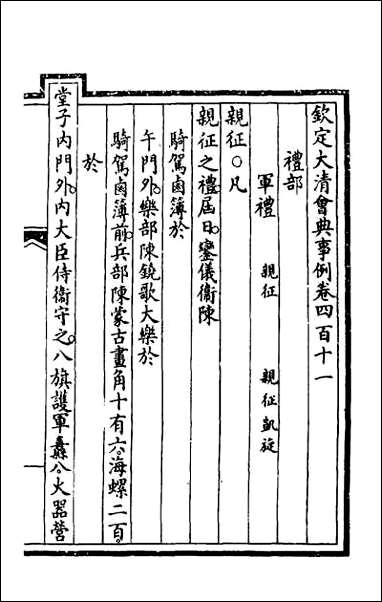 欽定大清會典事例卷四百十一
禮部
軍禮 親征 親征凱旋
親征○凡
親征之禮屆日鑾儀衞陳
騎駕鹵簿於
午門外樂部陳鐃歌大樂於
騎駕鹵簿前兵部陳蒙古畫角十有六海螺二百
於
堂子內門外內大臣侍衞守之八旗護軍纛八火器營